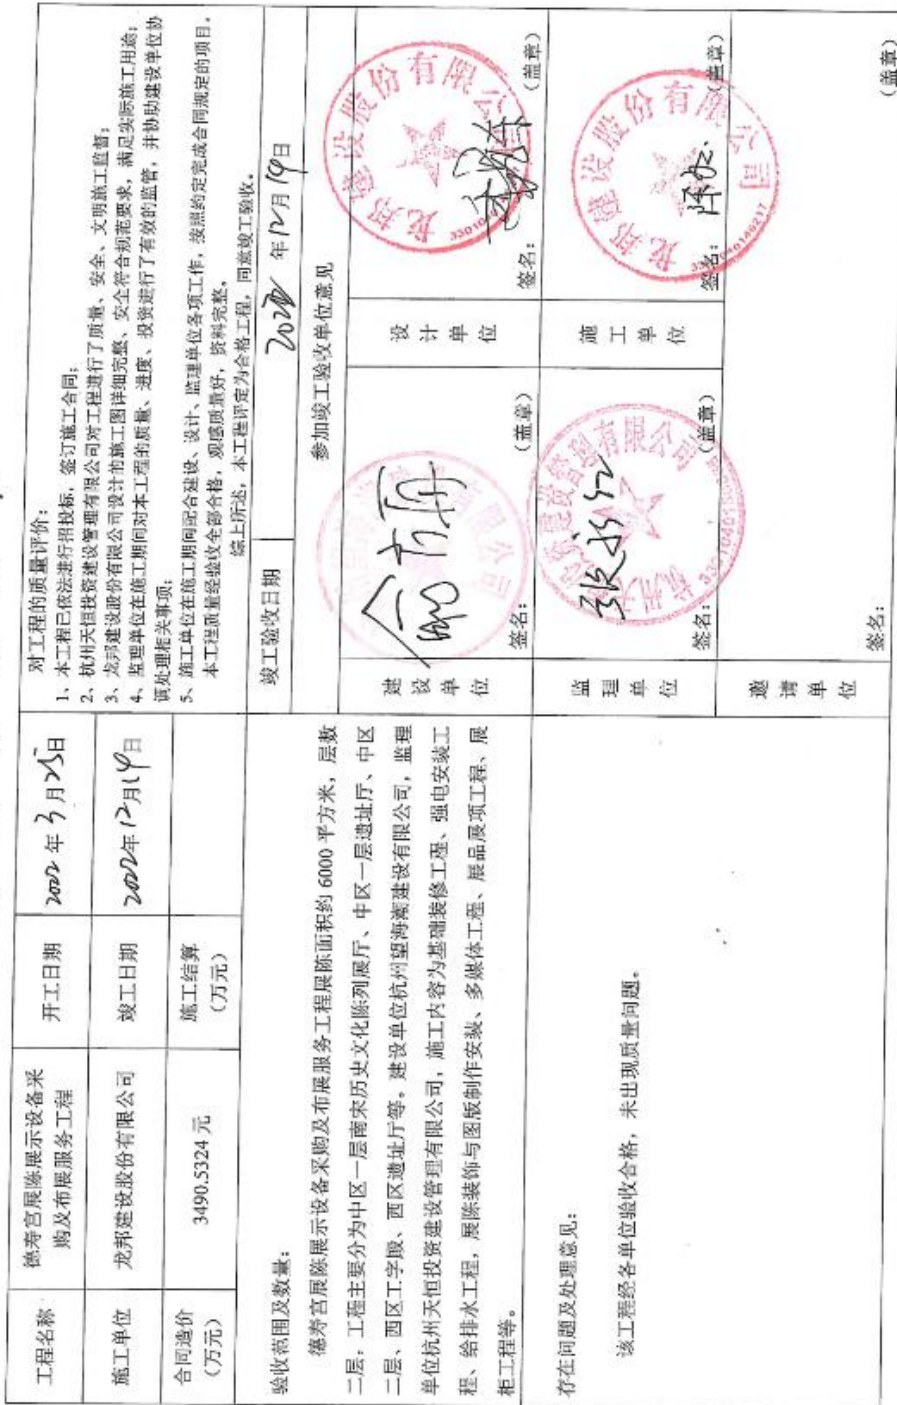 工程名称
德寿宫展陈展示设备采
购及布展服务工程
开工日期
2022年3月25日
施工单位
龙邦建设股份有限公司
竣工日期
2022年12月19日
合同造价
(万元)
3490.5324 元
施工结算
(万元)
验收范围及数量:
德寿宫展陈展示设备采购及布展服务工程展陈面积约 6000 平方米,层数
二层,工程主要分为中区一层南宋历史文化陈列展厅、中区一层遗址厅、中区
二层、西区工字殿、西区遗址厅等。建设单位杭州望海潮建设有限公司,监理
单位杭州天恒投资建设管理有限公司,施工内容为基础装修工程、强电安装工
程、给排水工程,展陈装饰与图版制作安装、多媒体工程、展品展项工程、展
柜工程等。
存在问题及处理意见:
该工程经各单位验收合格,未出现质量问题。
对工程的质量评价:
1、本工程已依法进行招投标,签订施工合同;
2、杭州天恒投资建设管理有限公司对工程进行了质量、安全、文明施工监督;
3、龙邦建设股份有限公司设计的施工图详细完整、安全符合规范要求,满足实际施工用途;
4、监理单位在施工期间对本工程的质量、进度、投资进行了有效的监管,并协助建设单位协
调处理相关事项;
5、施工单位在施工期间配合建设、设计、监理单位各项工作,按照约定完成合同规定的项目。
本工程质量经验收全部合格,观感质量好,资料完整。
综上所述,本工程评定为合格工程,同意竣工验收。
竣工验收日期
2022年12月19日
参加竣工验收单位意见
建设单位
签名:
(盖章)
设计单位
龙邦建设股份有限公司
签名:
(盖章)
监理单位
杭州天恒投资建设管理有限公司
签名:
(盖章)
施工单位
龙邦建设股份有限公司
签名:
(盖章)
邀请单位
签名:
(盖章)